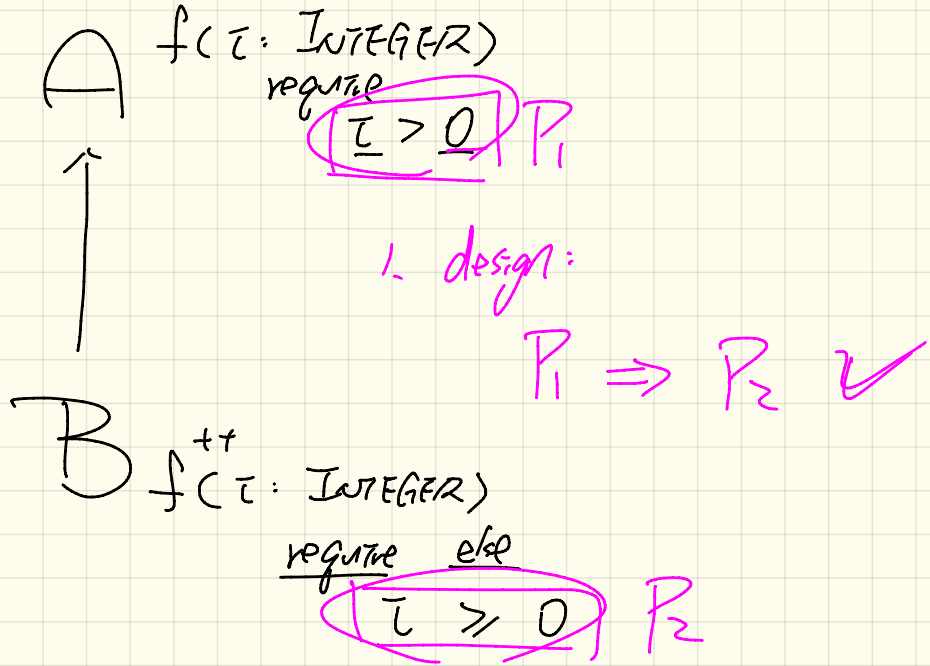 A f(i: INTEGER)
require
i > 0 P1
1. design:
P1 ⇒ P2 ✓
B f++(i: INTEGER)
require else
i ≥ 0 P2